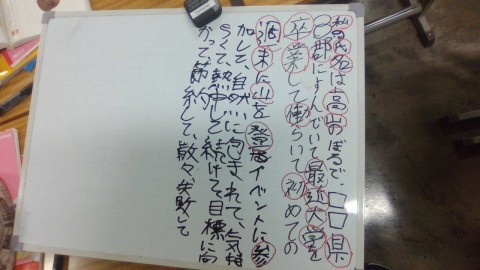 私の氏名は高山のぼるで、□□県
〇郡にすんでいて最近大学を
卒業して働らいて初めての
週末に山を登るイベントに参
加して、自然に包まれて、気持
ちくて、熱中して続けて目標に向
かって節約して、散々失敗して